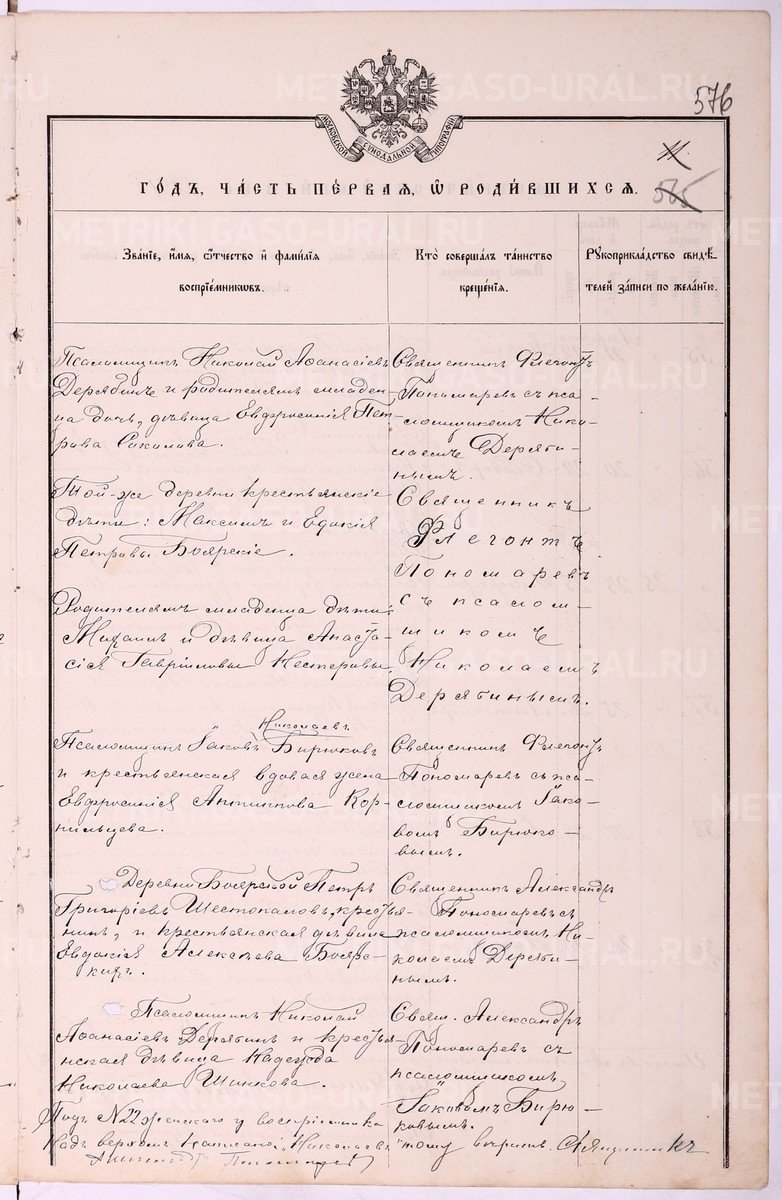 METRIKI.GASO-URAL.RU
576
МОСКОВСКОЙ СѴНОДАЛЬНОЙ ТИПОГРАФІИ
11.
565
ГО́ДЪ, ЧА́СТЬ ПЕ́РВАЯ, Ѽ РОДИ́ВШИХСЯ.
Зва́ніе, и҆́мя, ѻ҆́тчество и҆ фами́лія
воспріе́мникѡвъ.
Кто̀ соверша́лъ та́инство
креще́нія.
Рꙋкоприкла́дство свидѣ́-
телей за́писи по жела́нію.
Псаломщикъ Николай Аѳанасіевъ
Дерябинъ и родителямъ младен-
ца дочь, дѣвица Евфросинія Пет-
рова Соколова.
Священникъ Флегонтъ
Пономаревъ съ пса-
ломщикомъ Нико-
лаемъ Деряби-
нымъ.
Той-же деревни крестьянскіе
дѣти: Максимъ и Евдокія
Петровы Боярскіе.
Священникъ
Флегонтъ
Пономаревъ
съ псалом-
щикомъ
Николаемъ
Дерябинымъ.
Родителямъ младенца дѣти:
Михаилъ и дѣвица Анаста-
сія Гавріиловы Нестеровы.
Николаевъ
Псаломщикъ Іаковъ Бирюковъ
и крестьянская вдовая жена
Евфросинія Антипова Кор-
нильцева.
Священникъ Флегонтъ
Пономаревъ съ пса-
ломщикомъ Іако-
вомъ Бирюко-
вымъ.
Деревни Боярской Петръ
Григоріевъ Шестопаловъ, кресья-
нинъ, и крестьянская дѣвица
Евдокія Алексѣева Бояр-
кихъ.
Священникъ Александръ
Пономаревъ съ
псаломщикомъ Ни-
колаемъ Деряби-
нымъ.
Псаломщикъ Николай
Аѳанасіевъ Дерябинъ и крестья-
нская дѣвица Надежда
Николаева Шинкова.
Свящ. Александръ
Пономаревъ съ
псаломщикомъ
Іаковомъ Бирю-
ковымъ.
Подъ №22 женскаго у воспріемника
надъ верхомъ написано: "Николаевъ" тому вѣрить. Священникъ
Александръ Пономаревъ